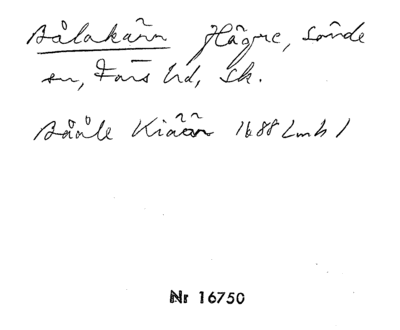 Bålakärr Häggre, Sönde
sn, Färs hd, Sk.
Bååle Kiäär 1688 Lmh 1
Nr 16750